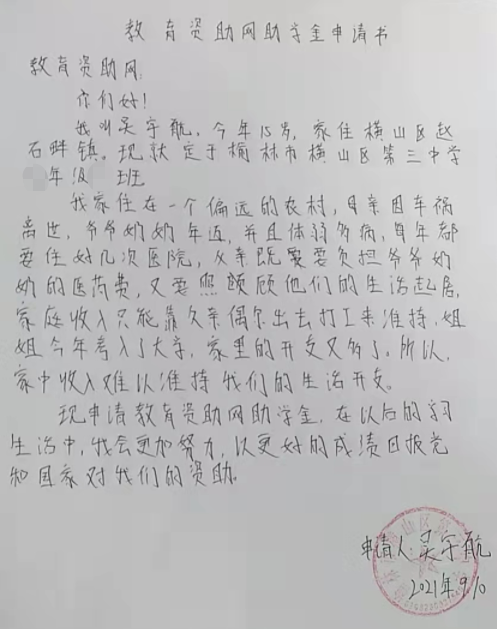 教育资助网助学金申请书
教育资助网:
你们好!
我叫吴宇航。今年15岁,家住横山区赵
石畔镇。现就定于榆林市横山区第三中学
年级 班
我家住在一个偏远的农村,母亲因车祸
离世,爷爷奶奶年迈,并且体弱多病,每年都
要住好几次医院,父亲既要要负担爷爷奶
奶的医药费,又要照顾他们的生活起居,
家庭收入只能靠父亲偶尔出去打工来维持,姐
姐今年考入了大学,家里的开支又多了。所以,
家中收入难以维持我们的生活开支。
现申请教育资助网助学金,在以后的学习
生活中,我会更加努力,以更好的成绩回报党
和国家对我们的资助。
申请人:吴宇航
2021年9.10